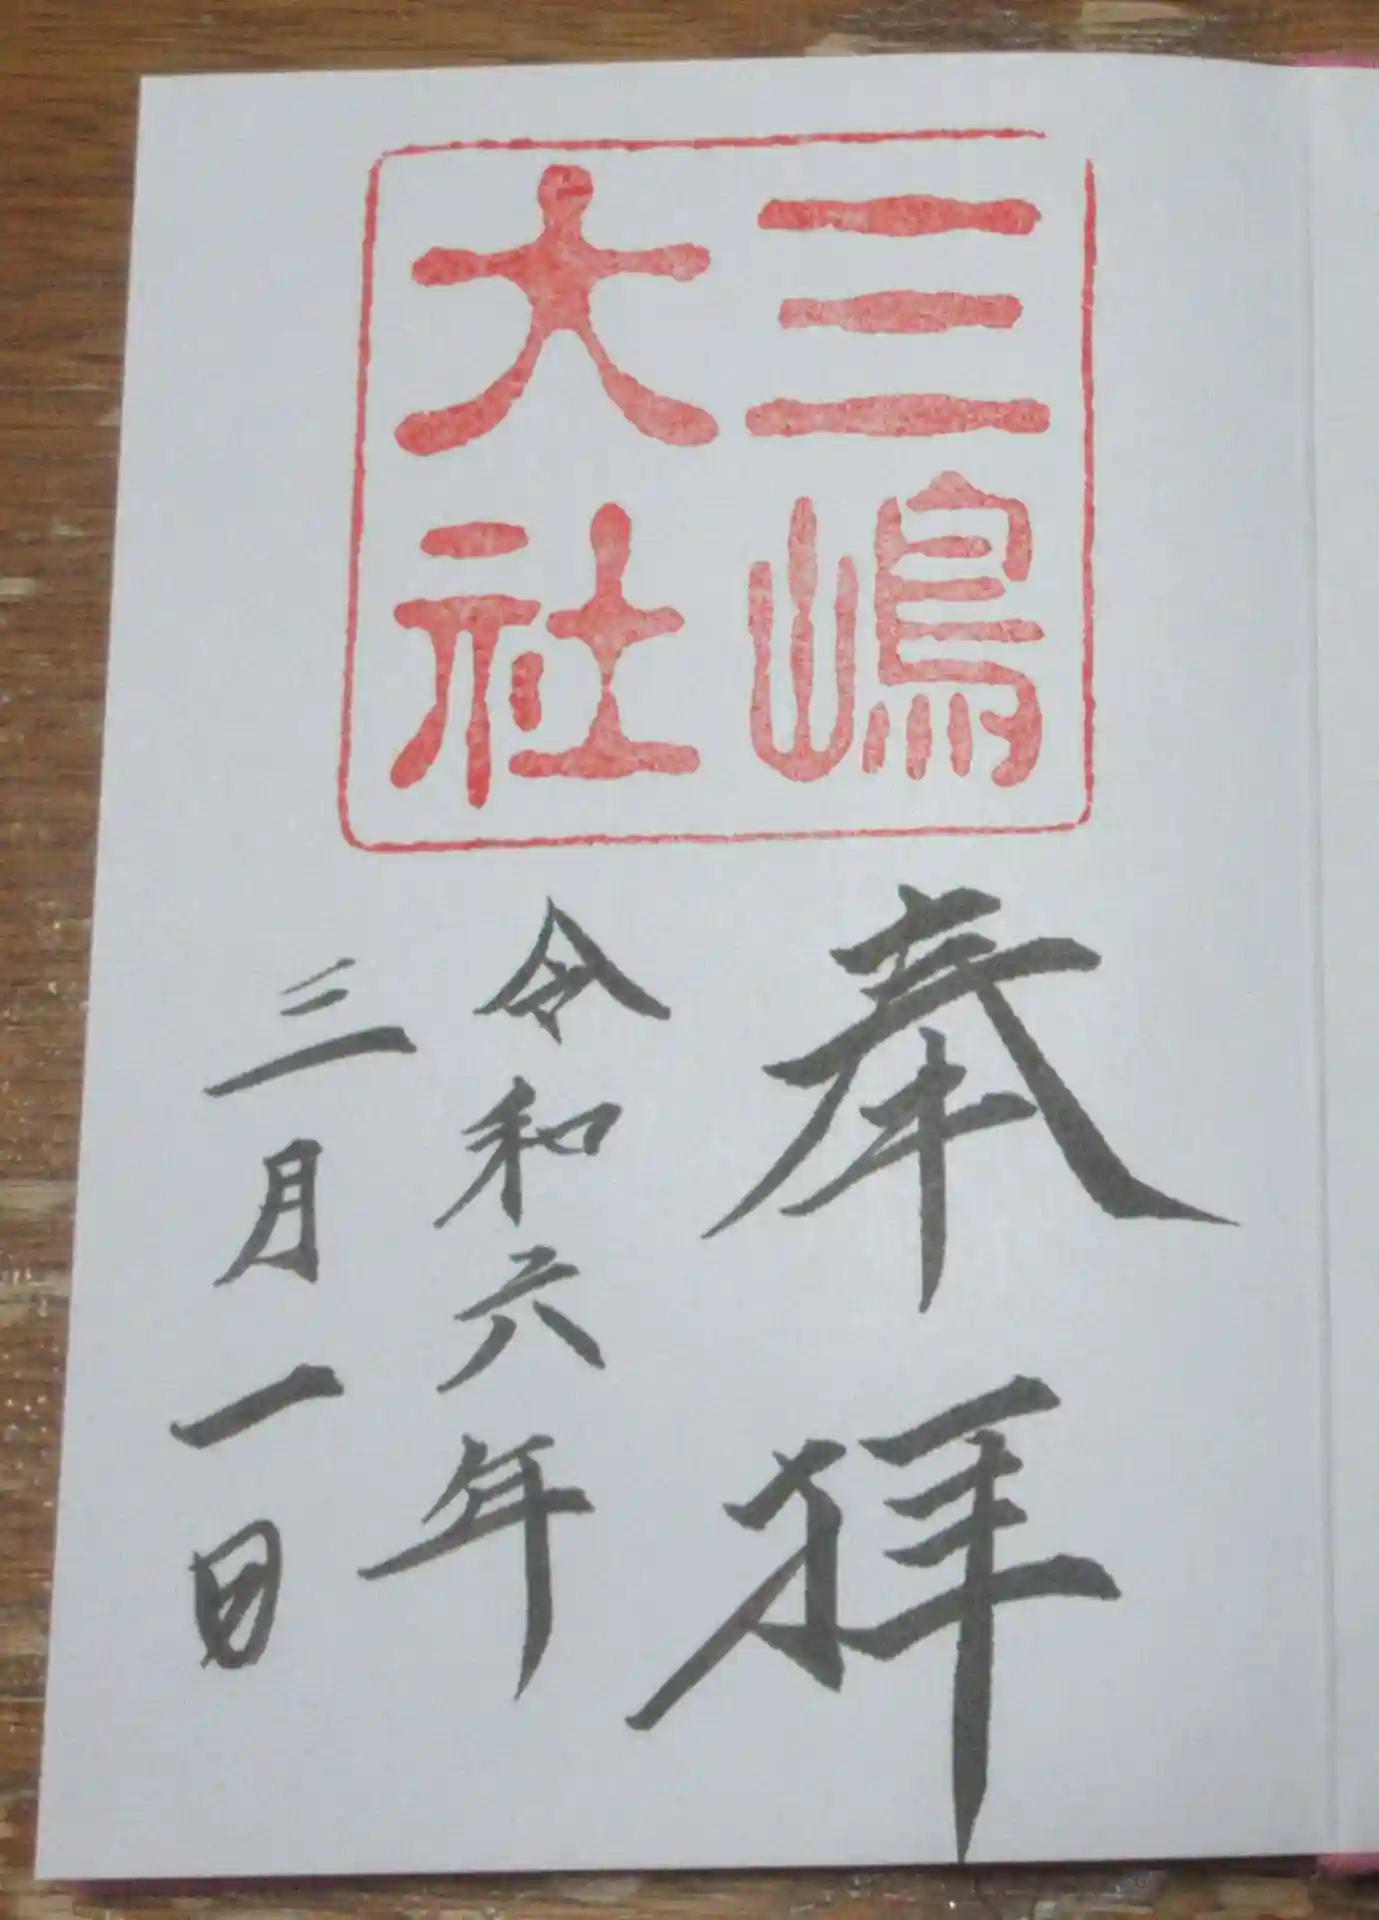 三嶋
大社
奉拝
令和六年
三月一日